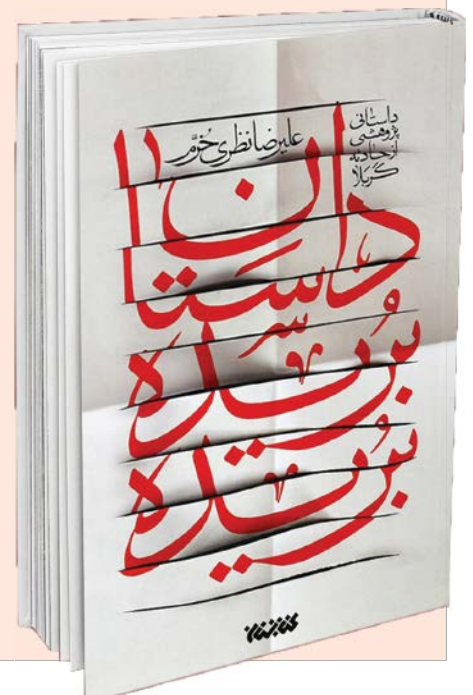 داستانی
پژوهشی
از حادثه
کربلا
علیرضا نظری خرّم
داستان
بُریده
بُریده
کتابستان